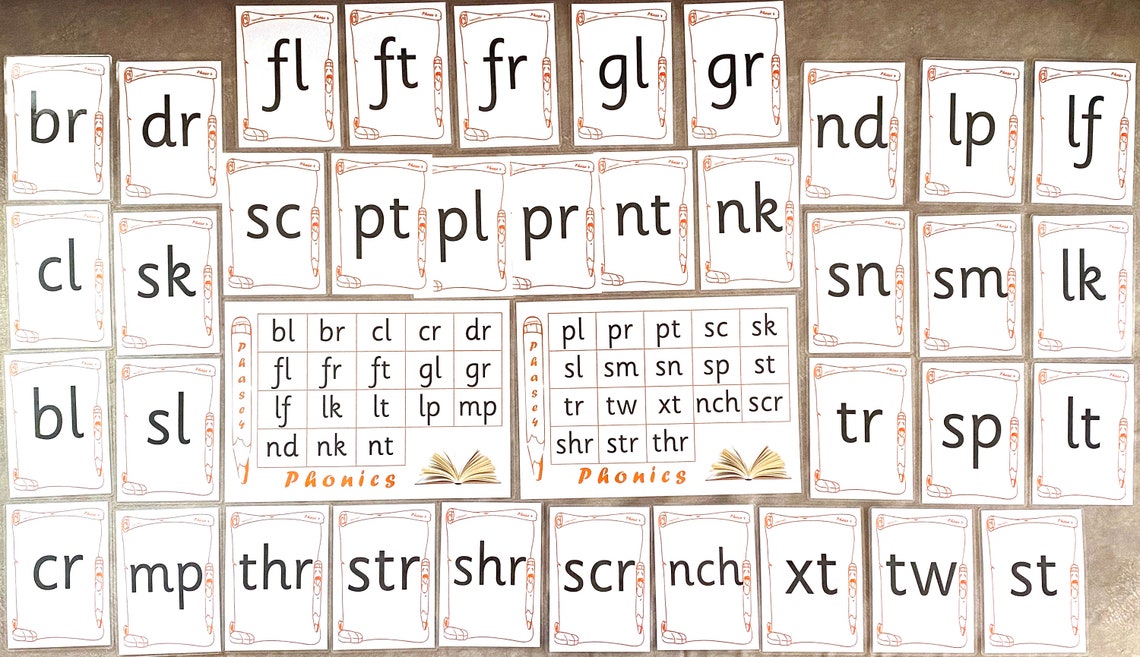 fl ft fr gl gr
br dr nd lp lf
sc pt pl pr nt nk
cl sk sn sm lk
bl sl tr sp lt
Phase 4
bl br cl cr dr
fl fr ft gl gr
lf lk lt lp mp
nd nk nt
Phonics
Phase 4
pl pr pt sc sk
sl sm sn sp st
tr tw xt nch scr
shr str thr
Phonics
cr mp thr str shr scr nch xt tw st